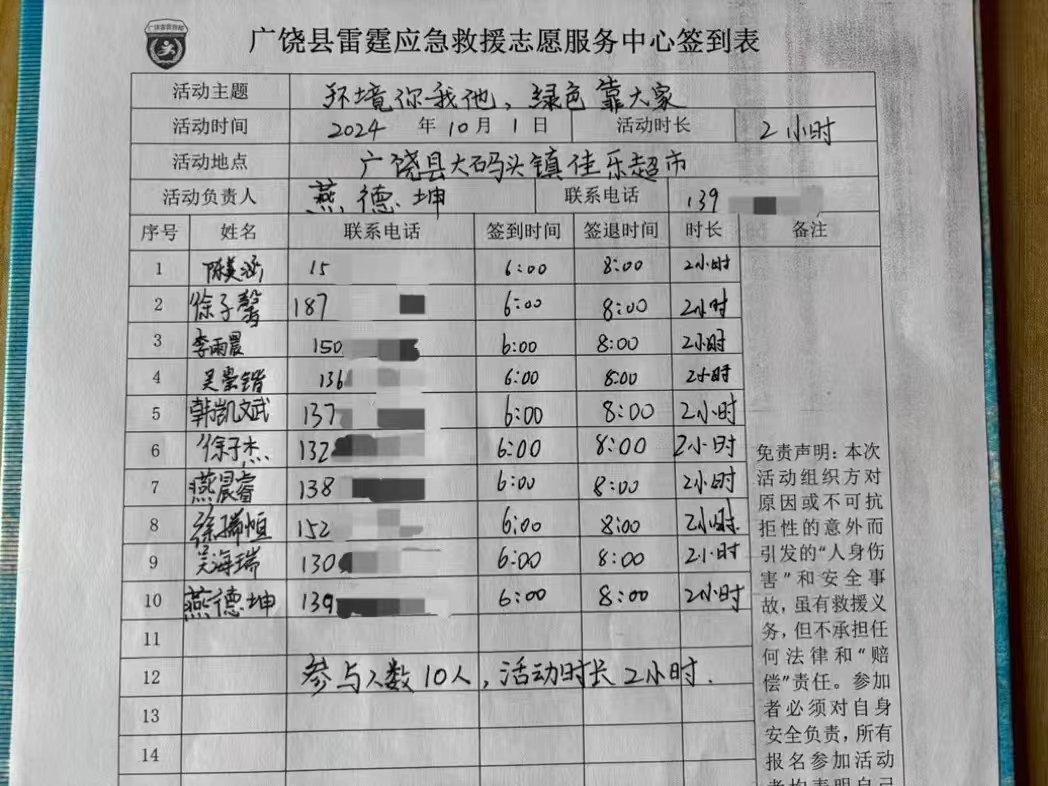 广饶县雷霆应急救援志愿服务中心签到表
活动主题 环境你我他，绿色靠大家
活动时间 2024 年 10 月 1 日 活动时长 2小时
活动地点 广饶县大码头镇佳乐超市
活动负责人 燕德坤 联系电话 139
序号 姓名 联系电话 签到时间 签退时间 时长 备注
1 陈美涵 15 6:00 8:00 2小时
2 徐子馨 187 6:00 8:00 2小时
3 李雨晨 150 6:00 8:00 2小时
4 吴崇锴 136 6:00 8:00 2小时
5 韩凯文武 137 6:00 8:00 2小时
6 徐子杰 132 6:00 8:00 2小时
7 燕晨睿 138 6:00 8:00 2小时
8 徐瑞恒 152 6:00 8:00 2小时
9 吴海瑞 130 6:00 8:00 2小时
10 燕德坤 139 6:00 8:00 2小时
11
12 参与人数10人，活动时长2小时.
13
14
免责声明：本次
活动组织方对
原因或不可抗
拒性的意外而
引发的“人身伤
害”和安全事
故，虽有救援义
务，但不承担任
何法律和“赔
偿”责任。参加
者必须对自身
安全负责，所有
报名参加活动
者均表明自己